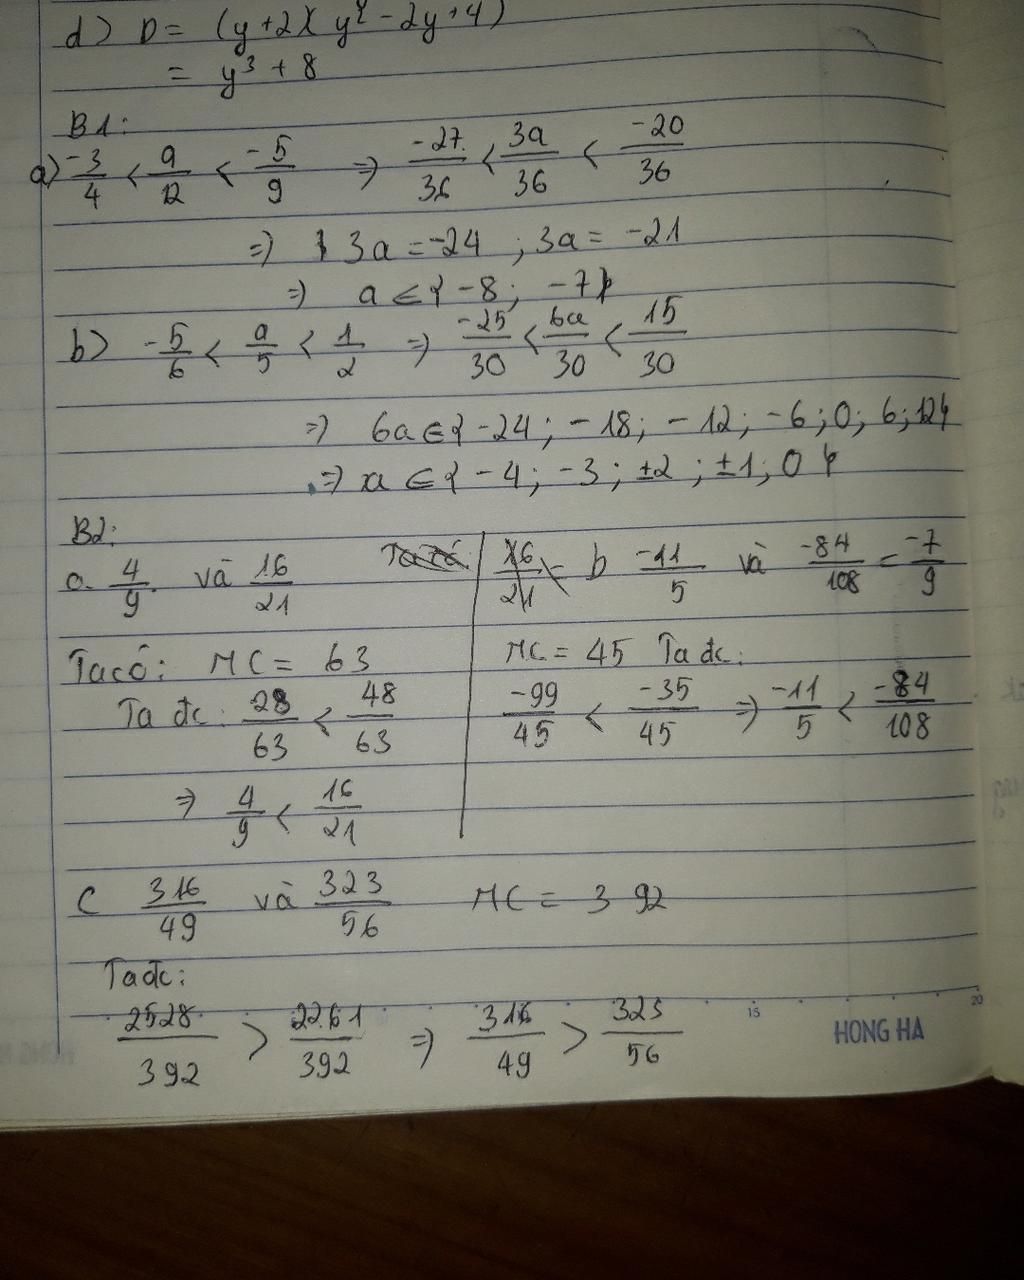 d) D = (y+2)(y² - 2y + 4)
= y³ + 8
B1:
a) -3/4 < a/12 < -5/9 => -27/36 < 3a/36 < -20/36
=> 3a = -24 ; 3a = -21
=> a ∈ { -8 ; -7 }
b) -5/6 < a/5 < 1/2 => -25/30 < 6a/30 < 15/30
=> 6a ∈ { -24 ; -18 ; -12 ; -6 ; 0 ; 6 ; 12 }
=> a ∈ { -4 ; -3 ; ±2 ; ±1 ; 0 }
B2:
a. 4/9 và 16/21
Ta có: MC = 63
Ta đc: 28/63 < 48/63
=> 4/9 < 16/21
b -11/5 và -84/108 = -7/9
MC = 45 Ta đc:
-99/45 < -35/45 => -11/5 < -84/108
C 316/49 và 323/56 MC = 392
Ta đc:
2528/392 > 2261/392 => 316/49 > 323/56
15 20
HONG HA